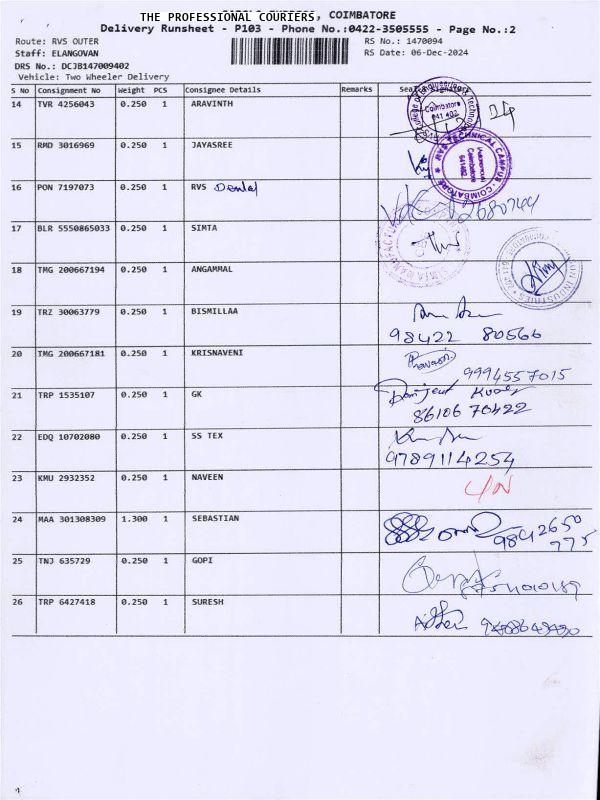 THE PROFESSIONAL COURIERS, COIMBATORE
Delivery Runsheet - P103 - Phone No.:0422-3505555 - Page No.:2
Route: RVS OUTER RS No.: 1470094
Staff: ELANGOVAN RS Date: 06-Dec-2024
DRS No.: DCJB147009402
Vehicle: Two Wheeler Delivery
S No Consignment No Weight PCS Consignee Details Remarks
14 TVR 4256043 0.250 1 ARAVINTH
15 RMD 3016969 0.250 1 JAYASREE
16 PON 7197073 0.250 1 RVS Dental
2680744
17 BLR 5550865033 0.250 1 SIMTA
18 TMG 200667194 0.250 1 ANGAMMAL
19 TRZ 30063779 0.250 1 BISMILLAA
98422 80566
20 TMG 200667181 0.250 1 KRISNAVENI
9994557015
21 TRP 1535107 0.250 1 GK
86106 70422
22 EDQ 10702080 0.250 1 SS TEX
9789114254
23 KMU 2932352 0.250 1 NAVEEN
24 MAA 301308309 1.300 1 SEBASTIAN
9842650
775
25 TNJ 635729 0.250 1 GOPI
26 TRP 6427418 0.250 1 SURESH